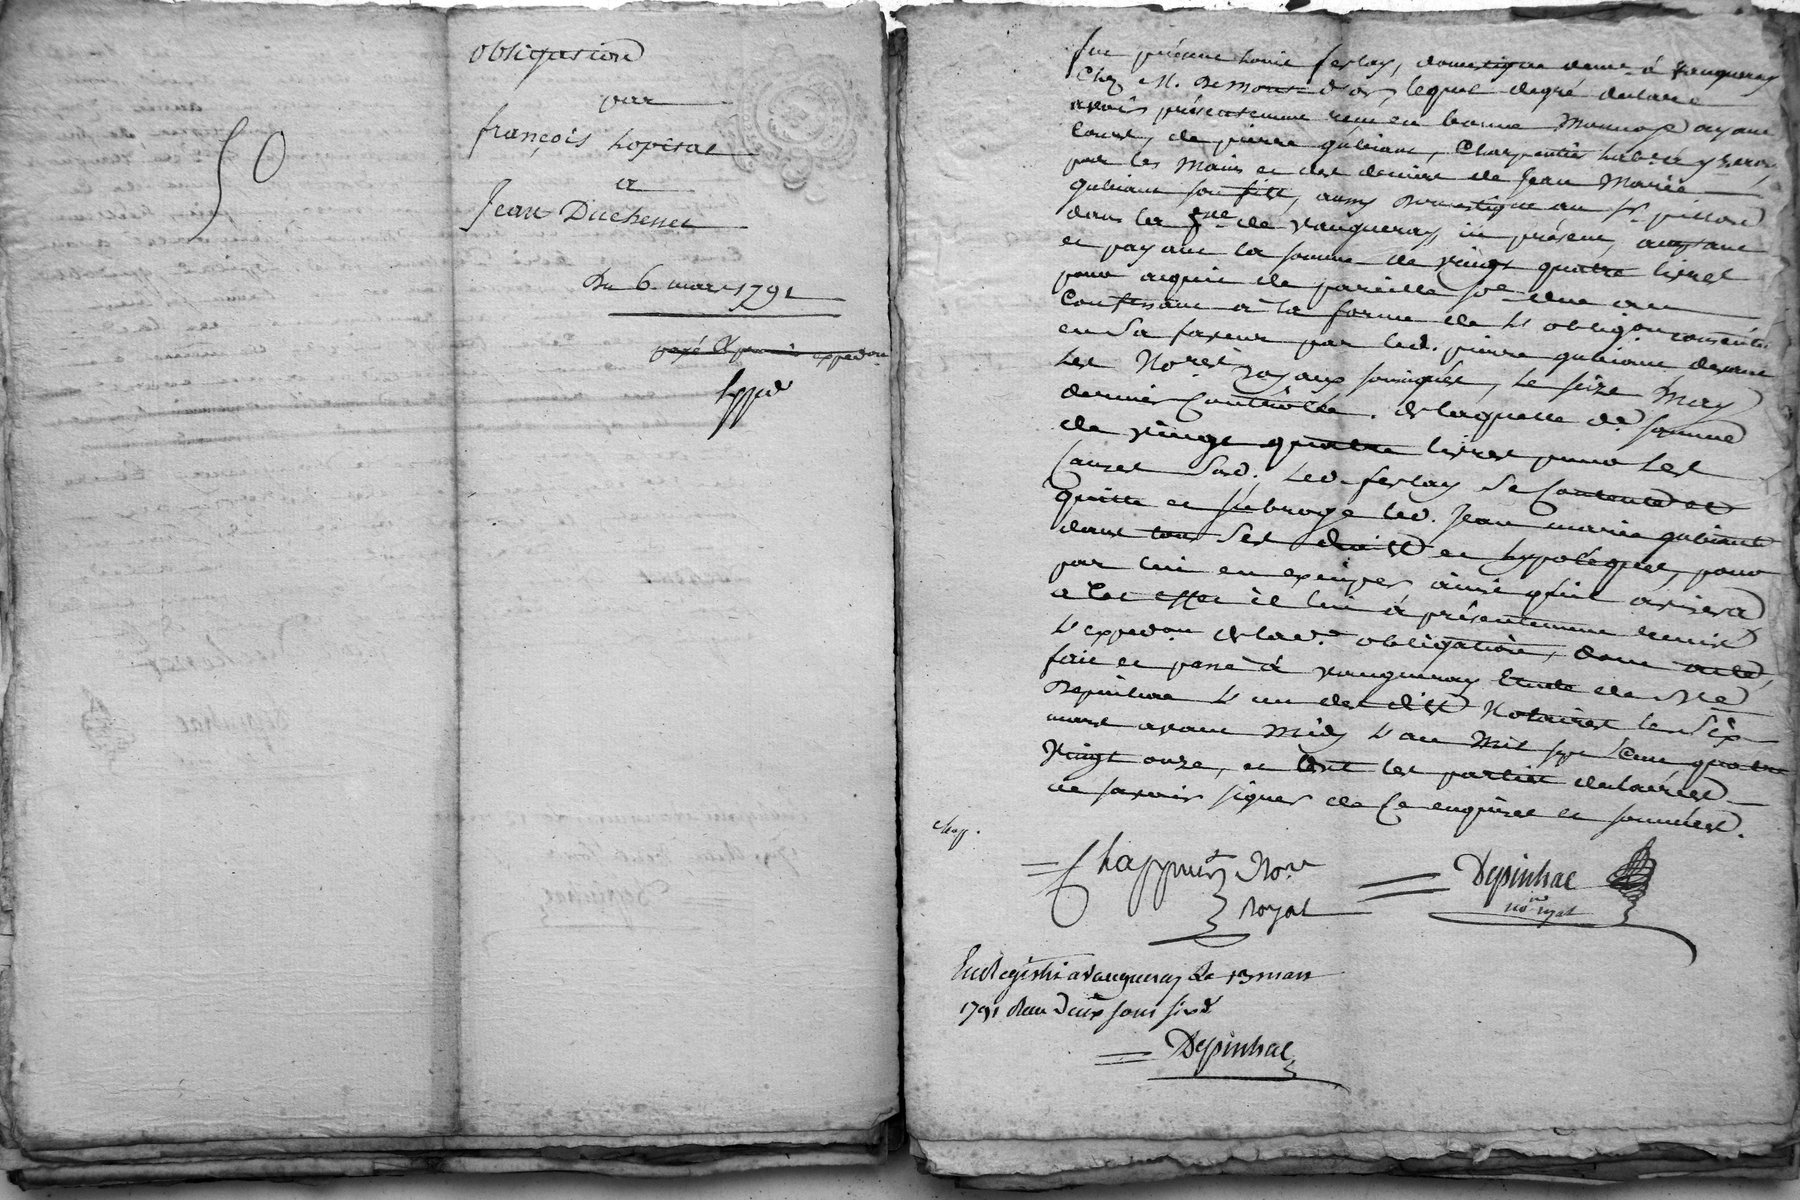 50
obligation
par
françois hopital
a
Jean Duchenet
Du 6 mars 1791
payé expedon
Expd
fut présent Louis ferlay, domestique demt. à Vaugneray
Chez M. De Mont d'or, lequel degré declare
avoir présentement reçu en bonne Monnoye ayant
Cours, de pierre gubiant, Charpentier habit. à yzeron,
par les Mains et des deniers de Jean Marie
gubiant son fils, aussy Domestique au Sr. pillon
dans la de Vaugneray, ici présent, acceptant
et payant la somme de vingt quatre livres
pour acquit de pareille soe. due au
Confessant à la forme de L'obligaon consentie
en Sa faveur par led. pierre gubiant devant
Les Nores royaux soussignés, Le seize May
dernier Contrôlée. de laquelle de. somme
de vingt quatre livres pour Les
Causes Susd. Led. ferlay Se Contente et
quitte et subroge led. Jean marie gubiant
dans tous Ses droits et hypotéques, pour
par lui en exciper ainsi qu'il avisera
a Cet effet il lui à présentement remis
L'expedon. de lade. obligation, dont acte,
fait et passé à Vaugneray Etude de Me
Depinhac L'un desdits Notaires le Six
mars avant Midy L'an Mil sept Cent quatre
Vingt onze, et tout les parties declarées
ne savoir signer de Ce enquises et sommées.
Chapp.
Chappuis Nore.
Royal
Depinhac
nore. royal
Enregistré a Vaugneray Le 13 mars
1791 Reçu Deux sous six d.
Depinhac